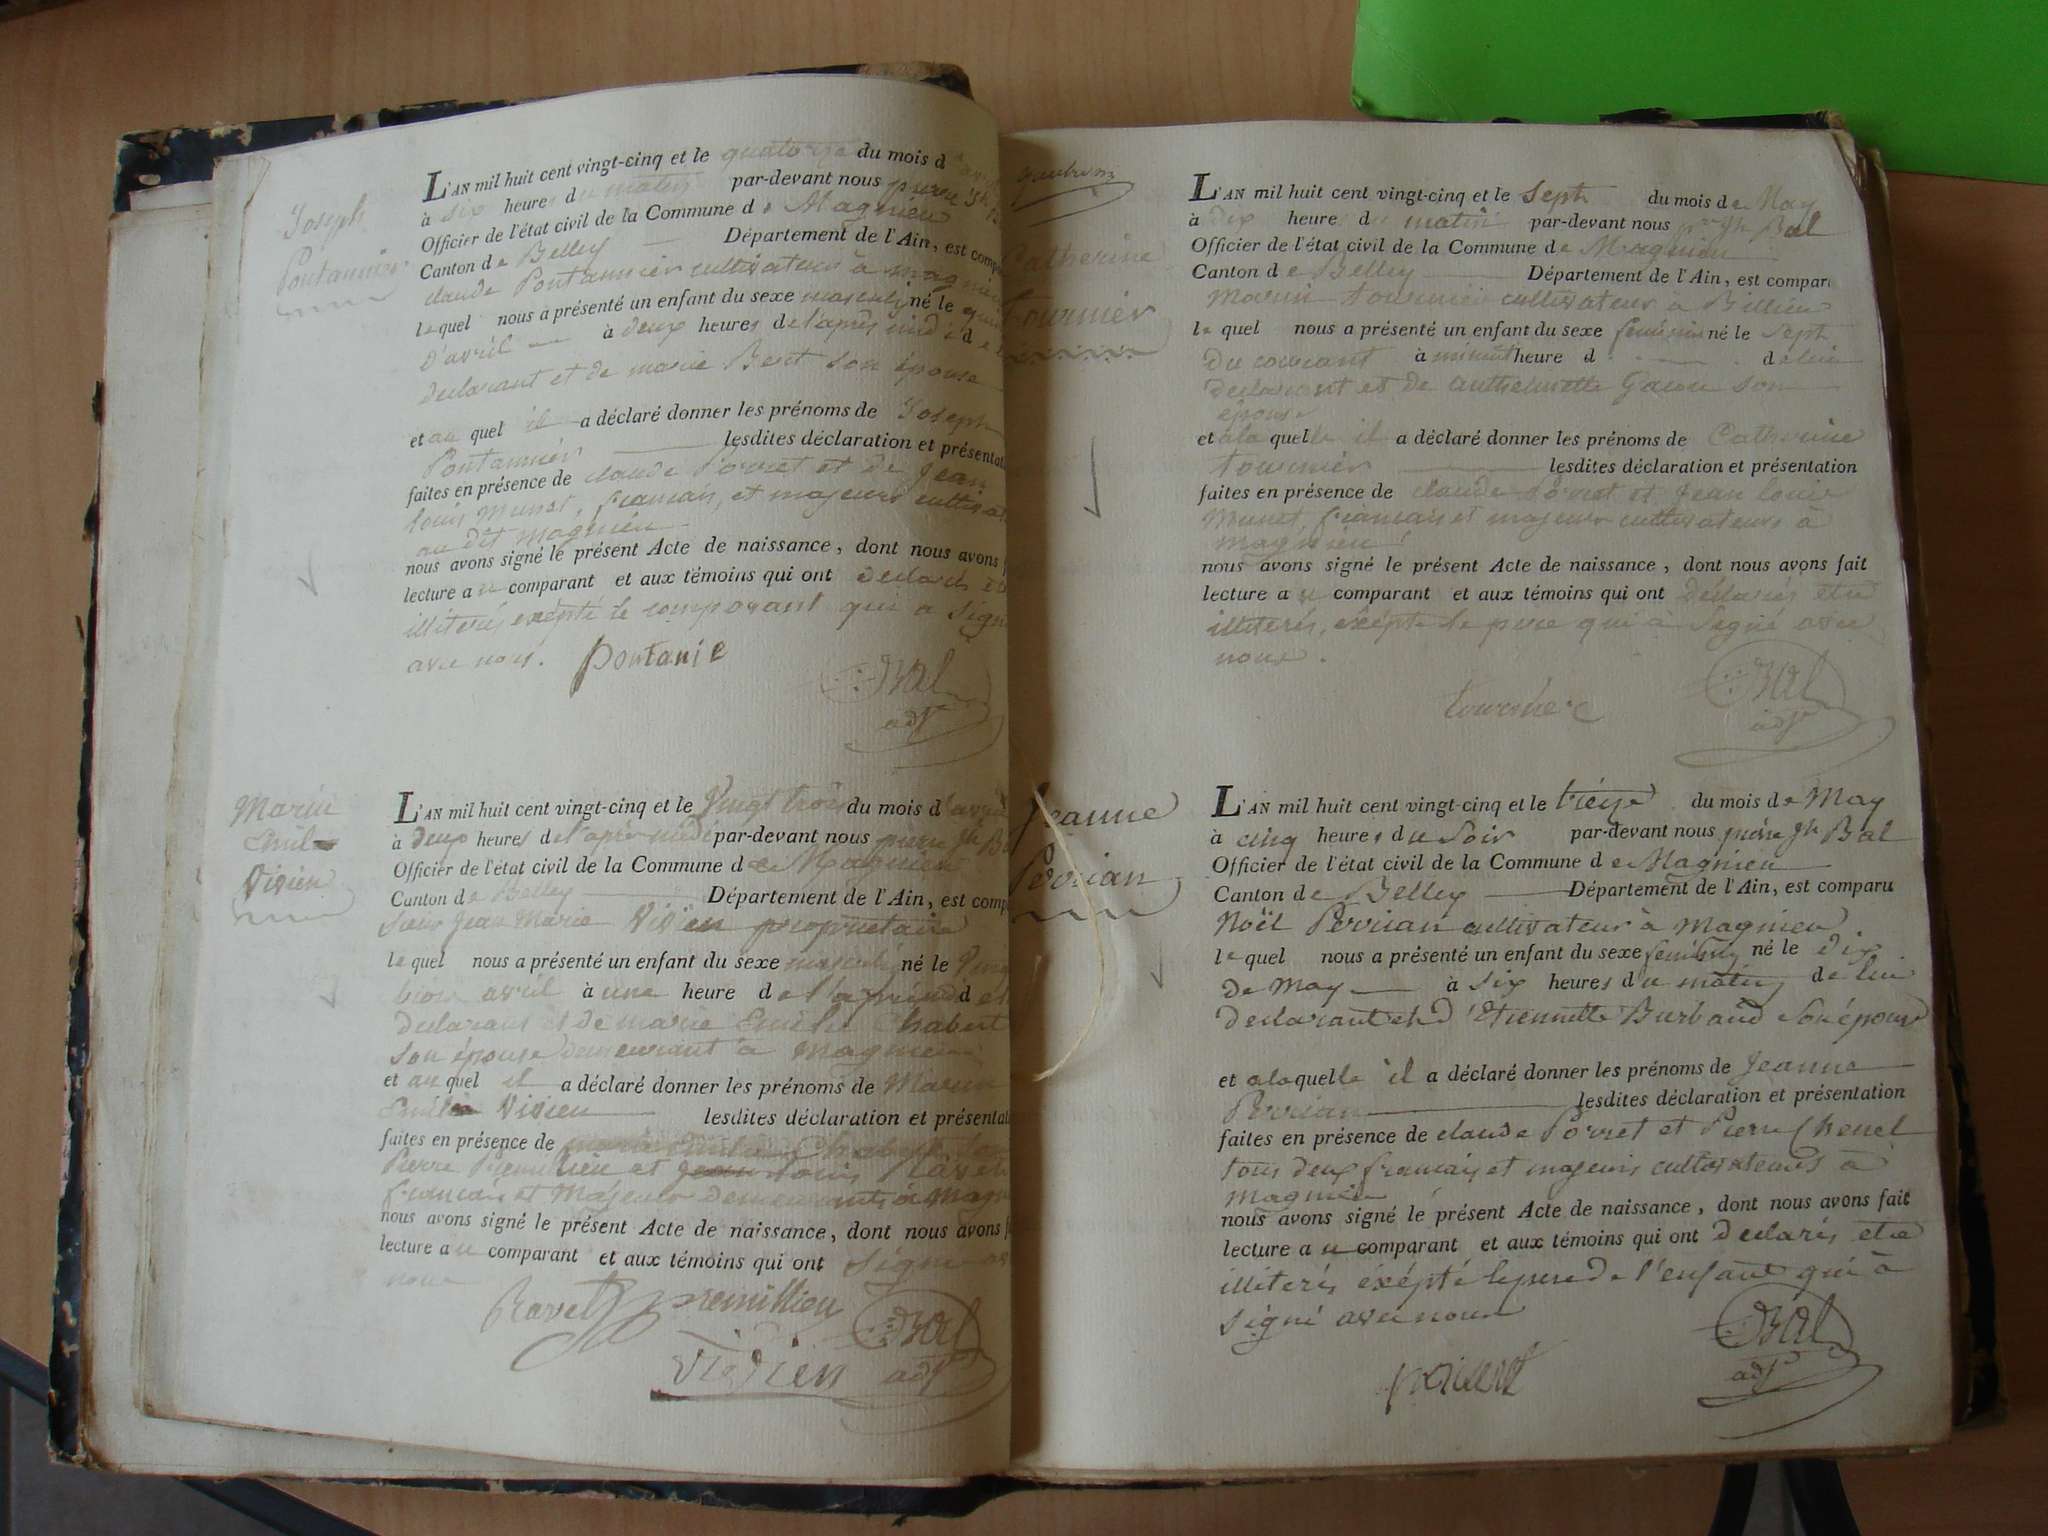 Joseph
Pontannier
L'AN mil huit cent vingt-cinq et le quatorze du mois d
à six heures du matin par-devant nous pierre Jh
Officier de l'état civil de la Commune de Magnieu
Canton de Belley Département de l'Ain, est comp
claude Pontannier cultivateur à magnieu
lequel nous a présenté un enfant du sexe masculin né le
d'avril à deux heures de l'après midi de
declarant et de marie Bert son épouse
et au quel il a déclaré donner les prénoms de Joseph
Pontannier lesdites déclaration et présentat
faites en présence de claude Porret et de Jean
louis Munet, francais, et majeurs cultivat
au dit magnieu
nous avons signé le présent Acte de naissance, dont nous avons f
lecture au comparant et aux témoins qui ont declarés
illiterés exépté le comparant qui a signé
avec nous. Pontanie
Bal
adjt
Marin
Emile
Vivien
L'AN mil huit cent vingt-cinq et le Vingt trois du mois d'avril
à deux heures de l'apres midi par-devant nous pierre Jh B
Officier de l'état civil de la Commune de Magnieu
Canton de Belley Département de l'Ain, est comp
Sieur Jean Marie Vivien proprietaire
lequel nous a présenté un enfant du sexe masculin né le Vingt
trois avril à une heure de l'apres midi de
declarant et de marie Emelie Chabert
son épouse demeurant à magnieu
et au quel il a déclaré donner les prénoms de Marin
Emile Vivien lesdites déclaration et présentat
faites en présence de marie Emelie Chabert
Pierre Premillieu et Jean louis Ravet
francais et Majeurs demeurants à Magn
nous avons signé le présent Acte de naissance, dont nous avons f
lecture au comparant et aux témoins qui ont signé
nous
Ravet premillieu
Vivien
Bal
adjt
Catherine
tournier
L'AN mil huit cent vingt-cinq et le sept du mois de May
à dix heures du matin par-devant nous pre Jh Bal
Officier de l'état civil de la Commune de Magnieu
Canton de Belley Département de l'Ain, est compar
Marin tournier cultivateur a Billieu
lequel nous a présenté un enfant du sexe feminin né le sept
du courant à minuit heure d de lui
declarant et de Anthelmette son
épouse
et a la quelle il a déclaré donner les prénoms de Catherine
tournier lesdites déclaration et présentation
faites en présence de claude Porret et Jean louis
Munet, francais et majeurs cultivateurs à
magnieu
nous avons signé le présent Acte de naissance, dont nous avons fait
lecture au comparant et aux témoins qui ont declarés etre
illiterés, exépté le pere qui à signé avec
nous.
tournier
Bal
adjt
Jeanne
Perrian
L'AN mil huit cent vingt-cinq et le treize du mois de May
à cinq heures du soir par-devant nous pierre Jh Bal
Officier de l'état civil de la Commune de Magnieu
Canton de Belley Département de l'Ain, est comparu
Noël Perrian cultivateur à Magnieu
lequel nous a présenté un enfant du sexe feminin né le dix
de May à six heures du matin de lui
declarant et d'Etiennette Burbaud son épouse
et a laquelle il a déclaré donner les prénoms de Jeanne
Perrian lesdites déclaration et présentation
faites en présence de claude Porret et Pierre Chenel
tous deux francais et majeurs cultivateurs à
Magnieu
nous avons signé le présent Acte de naissance, dont nous avons fait
lecture au comparant et aux témoins qui ont declarés etre
illiterés éxépté le pere de l'enfant qui à
signé avec nous
Bal
adjt